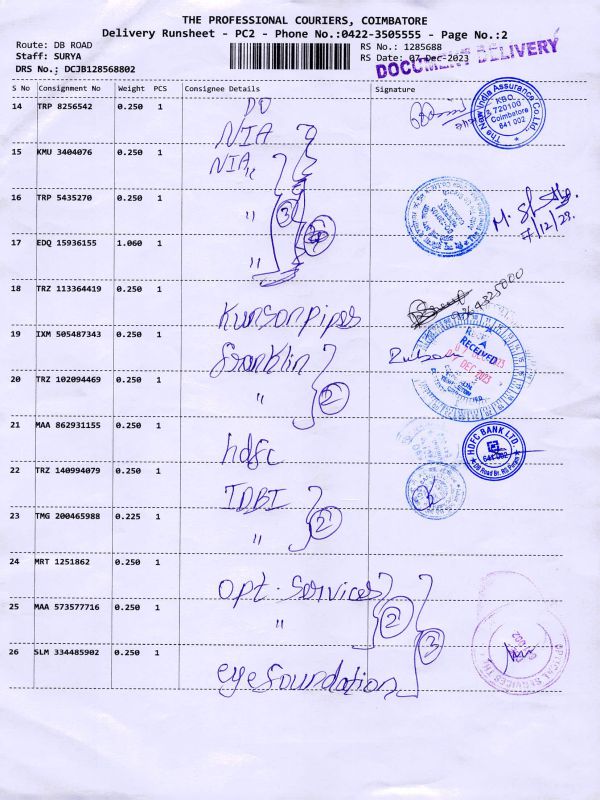 THE PROFESSIONAL COURIERS, COIMBATORE
Delivery Runsheet - PC2 - Phone No.:0422-3505555 - Page No.:2
Route: DB ROAD
Staff: SURYA
DRS No.; DCJB128568802
RS No.: 1285688
RS Date: 07-Dec-2023
DOCUMENT DELIVERY
S No Consignment No Weight PCS Consignee Details Signature
14 TRP 8256542 0.250 1
NIA
The New India Assurance Co. Ltd.,
KBO
720100
Coimbatore
641 002
15 KMU 3404076 0.250 1 NIA
16 TRP 5435270 0.250 1 "
3
7/12/23.
17 EDQ 15936155 1.060 1 "
18 TRZ 113364419 0.250 1 Kunsonpipes
19 IXM 505487343 0.250 1 franklin
RECEIVED
07 DEC 2023
20 TRZ 102094469 0.250 1 "
2
21 MAA 862931155 0.250 1 hdfc
HDFC BANK LTD.
22 TRZ 140994079 0.250 1 IDBI
23 TMG 200465988 0.225 1 "
2
24 MRT 1251862 0.250 1 opt. services
25 MAA 573577716 0.250 1 "
2
3
26 SLM 334485902 0.250 1 eyefoundation